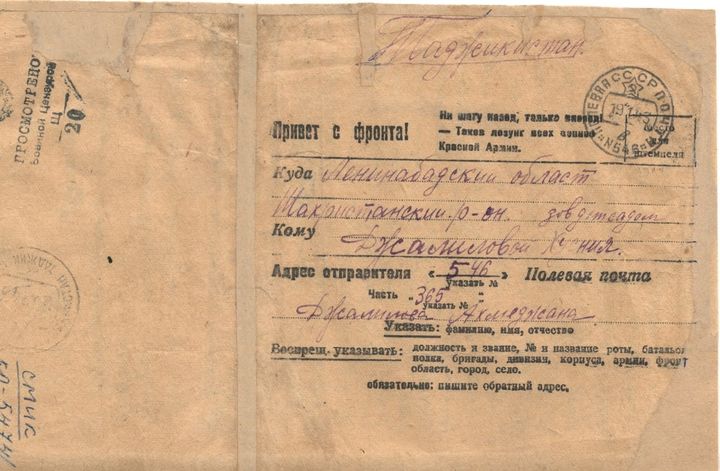 Таджикистан.
ПРОСМОТРЕНО
Военной Цензурой
20
СССР ПОЧТА
Привет с фронта!
Ни шагу назад, только вперед!
— Таков лозунг всех воинов
Красной Армии.
место
штемпеля
Куда Ленинабадский област
Шахристанский р-он.
Кому Джалиловой
Адрес отправителя « 546 » Полевая почта
указать №
Часть „ 365 “
указать №
Джалилова Ахмеджана
Указать: фамилию, имя, отчество
Воспрещ. указывать: должность и звание, № и название роты, батальон
полка, бригады, дивизии, корпуса, армии, фронт
область, город, село.
обязательно: пишите обратный адрес.
СМИК